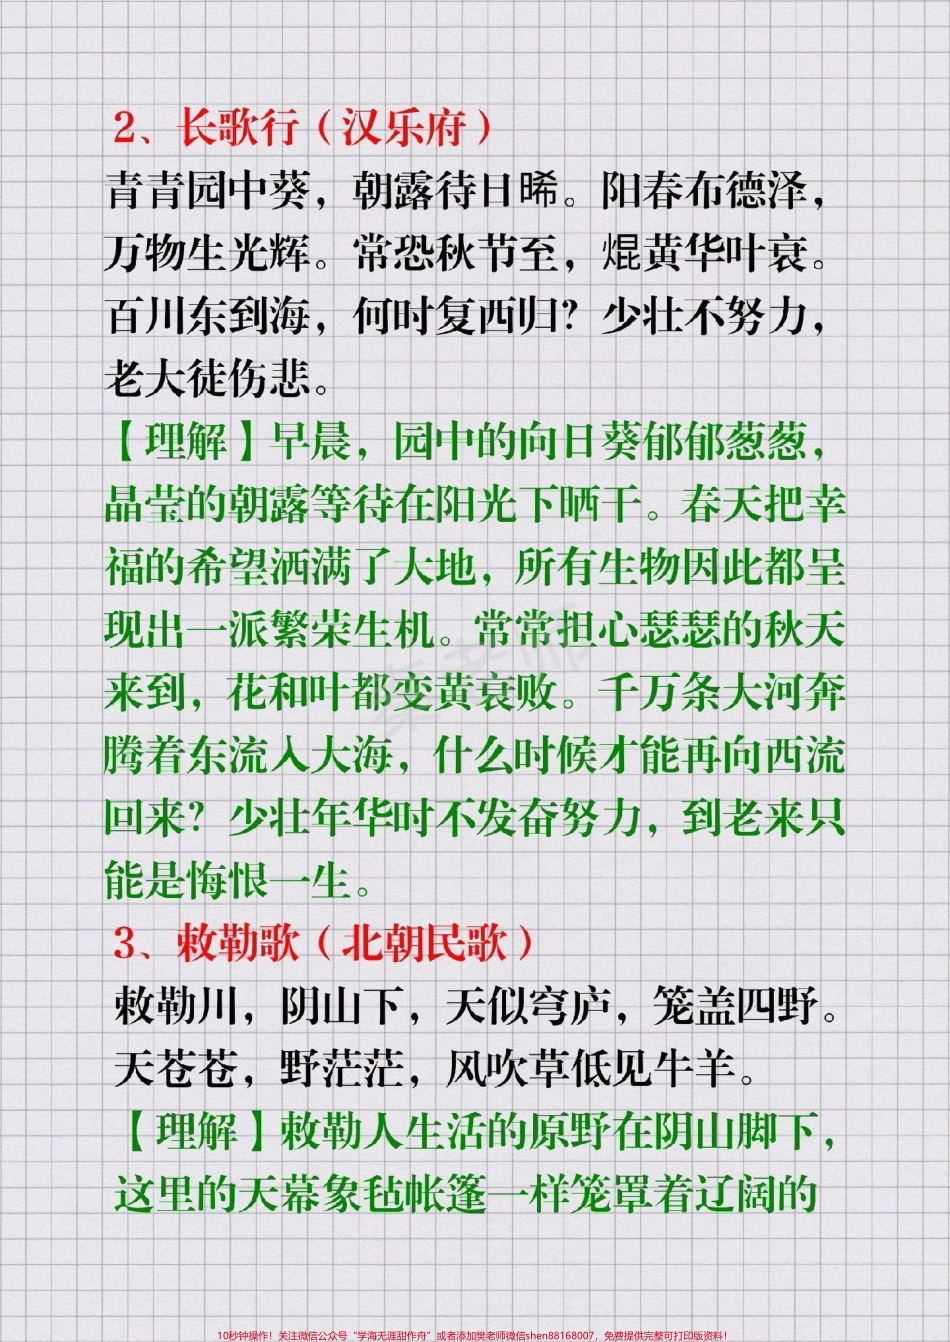 2、长歌行（汉乐府）
青青园中葵，朝露待日晞。阳春布德泽，
万物生光辉。常恐秋节至，焜黄华叶衰。
百川东到海，何时复西归？少壮不努力，
老大徒伤悲。
【理解】早晨，园中的向日葵郁郁葱葱，
晶莹的朝露等待在阳光下晒干。春天把幸
福的希望洒满了大地，所有生物因此都呈
现出一派繁荣生机。常常担心瑟瑟的秋天
来到，花和叶都变黄衰败。千万条大河奔
腾着东流入大海，什么时候才能再向西流
回来？少壮年华时不发奋努力，到老来只
能是悔恨一生。
3、敕勒歌（北朝民歌）
敕勒川，阴山下，天似穹庐，笼盖四野。
天苍苍，野茫茫，风吹草低见牛羊。
【理解】敕勒人生活的原野在阴山脚下，
这里的天幕象毡帐篷一样笼罩着辽阔的
樊老师
10秒钟操作！关注微信公众号“学海无涯甜作舟”或者添加樊老师微信shen88168007，免费提供完整可打印版资料！